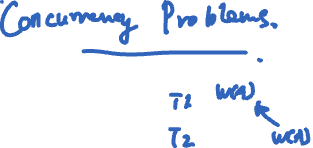 Concurrency Problems.
T1 W(A)
T2 W(A)